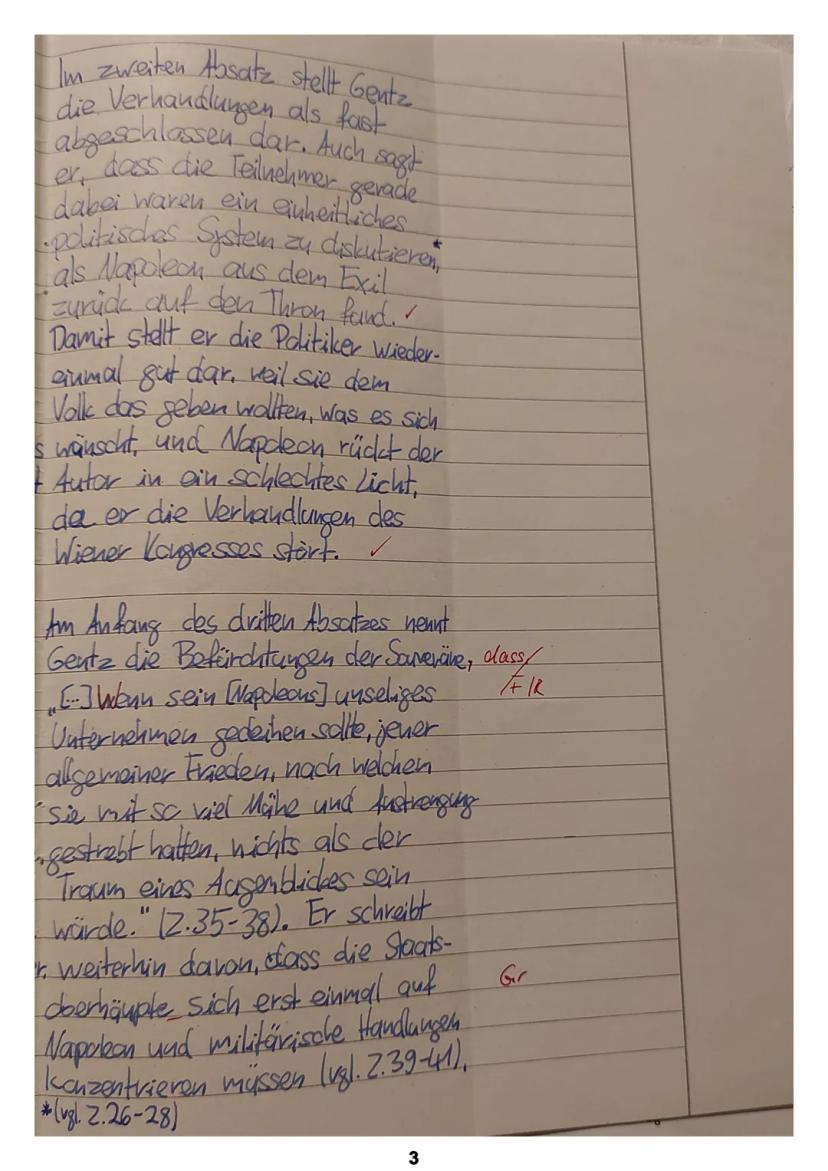 Im zweiten Absatz stellt Gentz
die Verhandlungen als fast
abgeschlossen dar. Auch sagt
er, dass die Teilnehmer gerade
dabei waren ein einheitliches
politisches System zu diskutieren,*
als Napoleon aus dem Exil
zurück auf den Thron fand. ✓
Damit stellt er die Politiker wieder-
einmal gut dar, weil sie dem
Volk das geben wollten, was es sich
s wünscht, und Napoleon rückt der
t Autor in ein schlechtes Licht,
da er die Verhandlungen des
Wiener Kongresses stört. ✓
Am Anfang des dritten Absatzes nennt
Gentz die Befürchtungen der Souveräne, dass/
„[...] Wenn sein [Napoleons] unseliges /+ R
Unternehmen gedeihen sollte, jener
allgemeiner Frieden, nach welchen
sie mit so viel Mühe und Anstrengung
gestrebt hatten, nichts als der
Traum eines Augenblickes sein
würde." (Z.35-38). Er schreibt
r. weiterhin davon, dass die Staats-
oberhäupte sich erst einmal auf Gr
Napoleon und militärische Handlungen
konzentrieren müssen (vgl. Z.39-41).
*(vgl. Z.26-28)
3